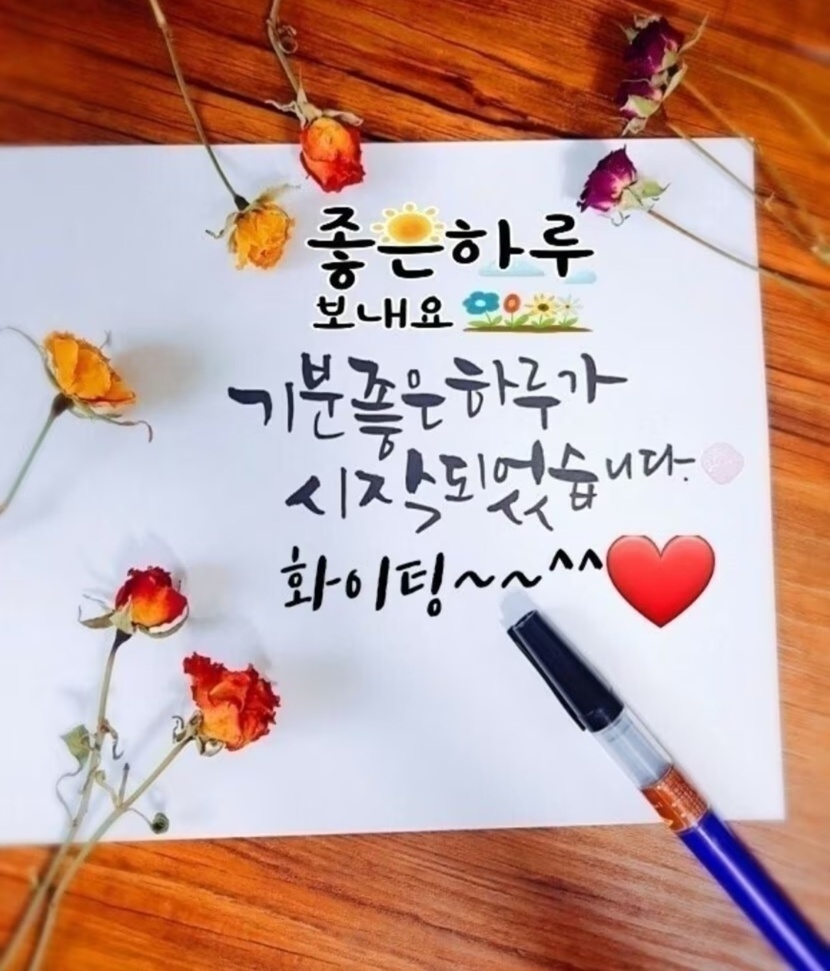 좋은하루
보내요
기분좋은하루가
시작되었습니다.
화이팅~~^^